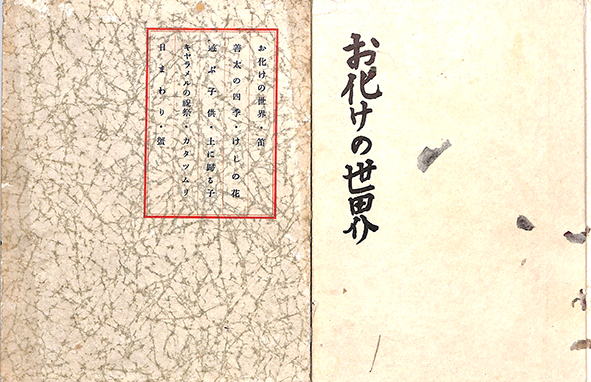 お化けの世界・笛
善太の四季・けしの花
遊ぶ子供・土に歸る子
キャラメルの祝祭・カタツムリ
日まわり・蟹
お化けの世界